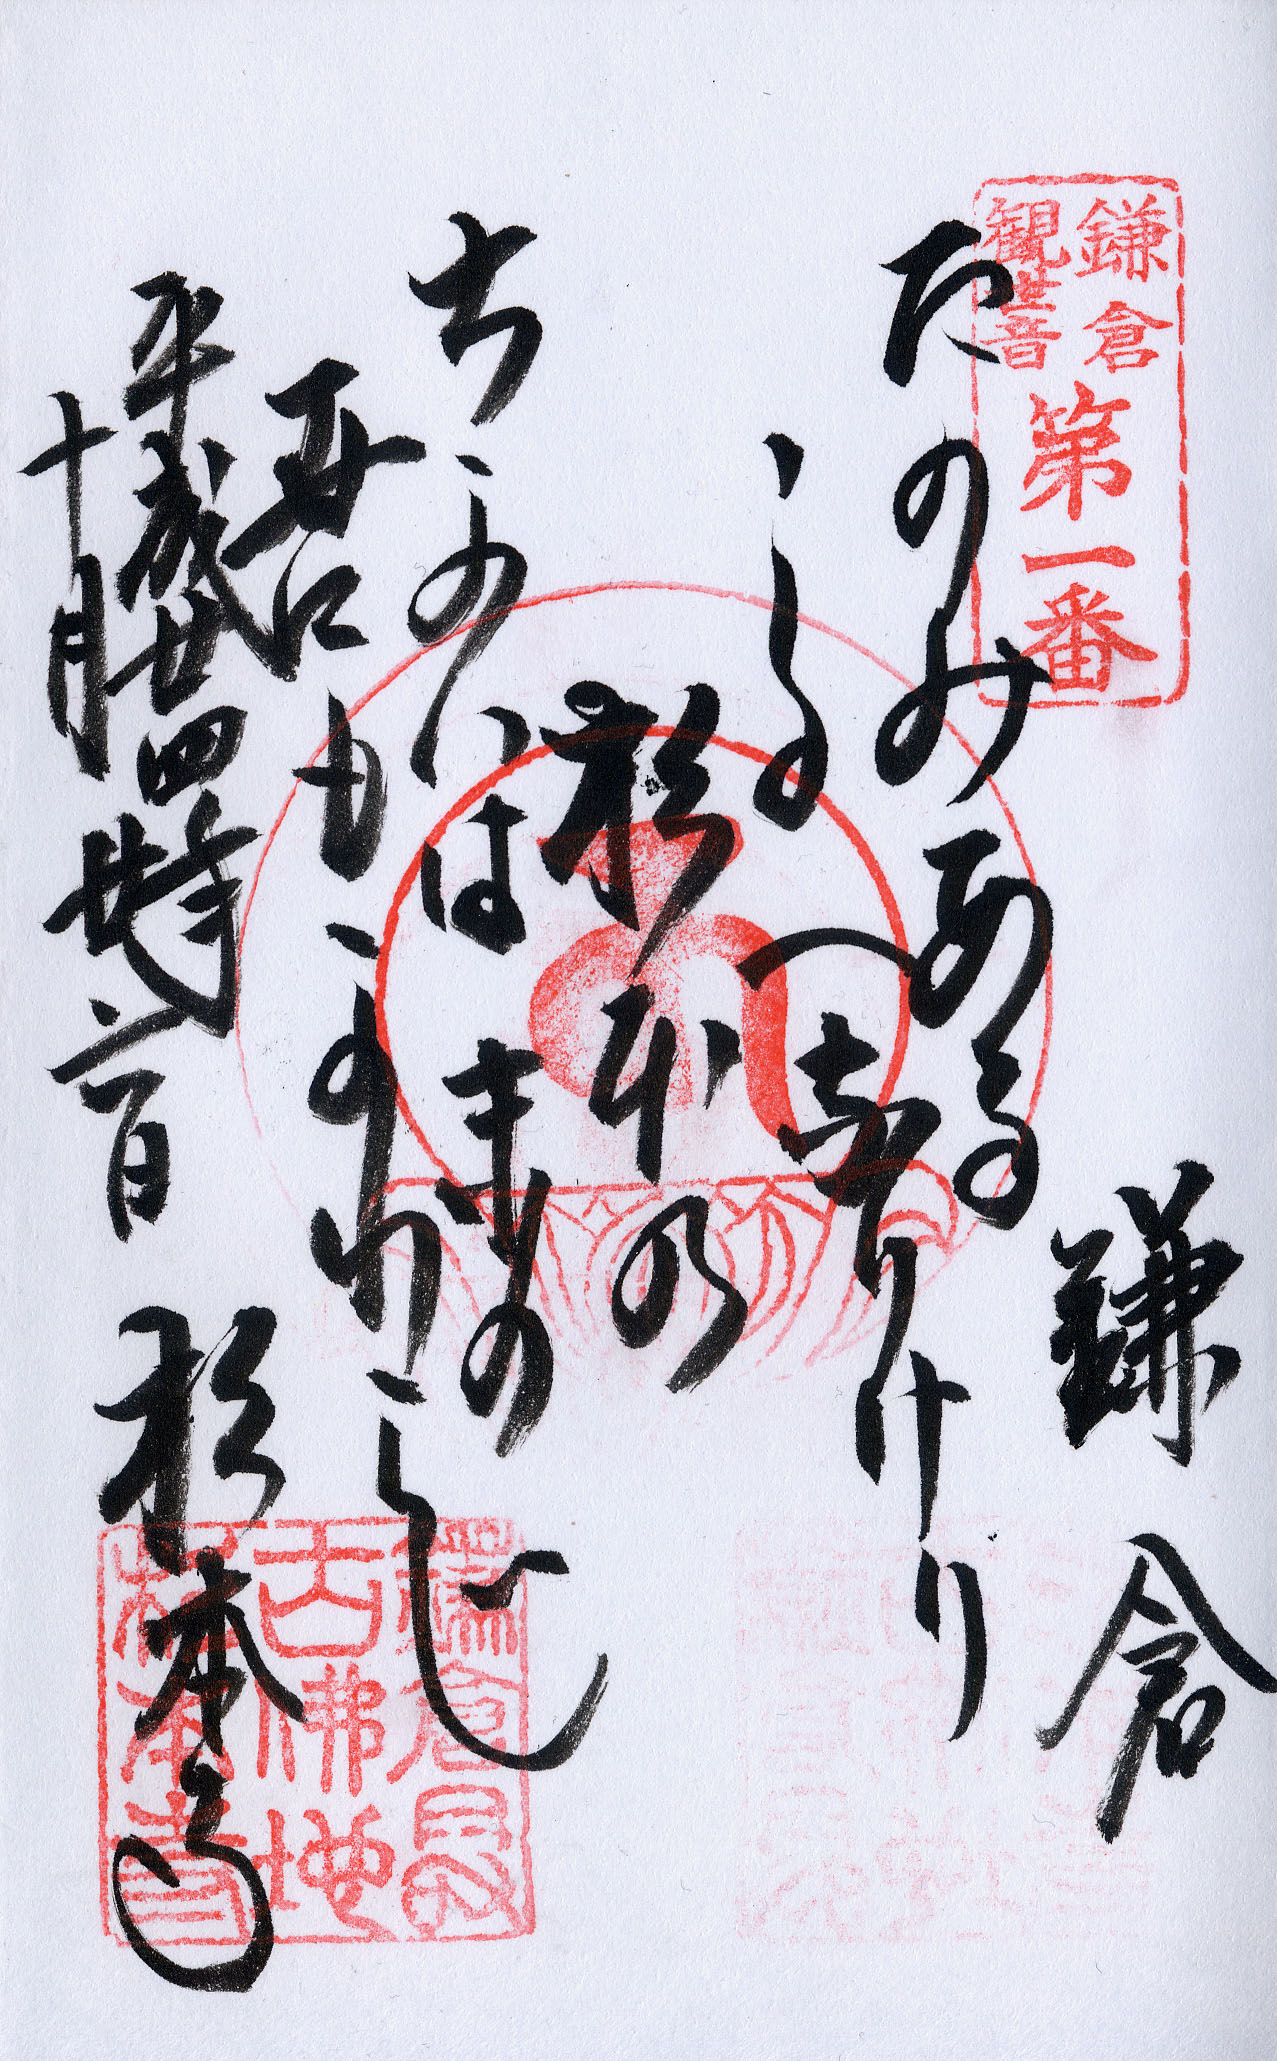 鎌倉
観世音
第一番
鎌倉
たのみある
しるべなりけり
杉本の
ちかひは末の
世にもかはらじ
平成廿四年
十月
杉本寺
鎌倉最
古佛地
杉本寺